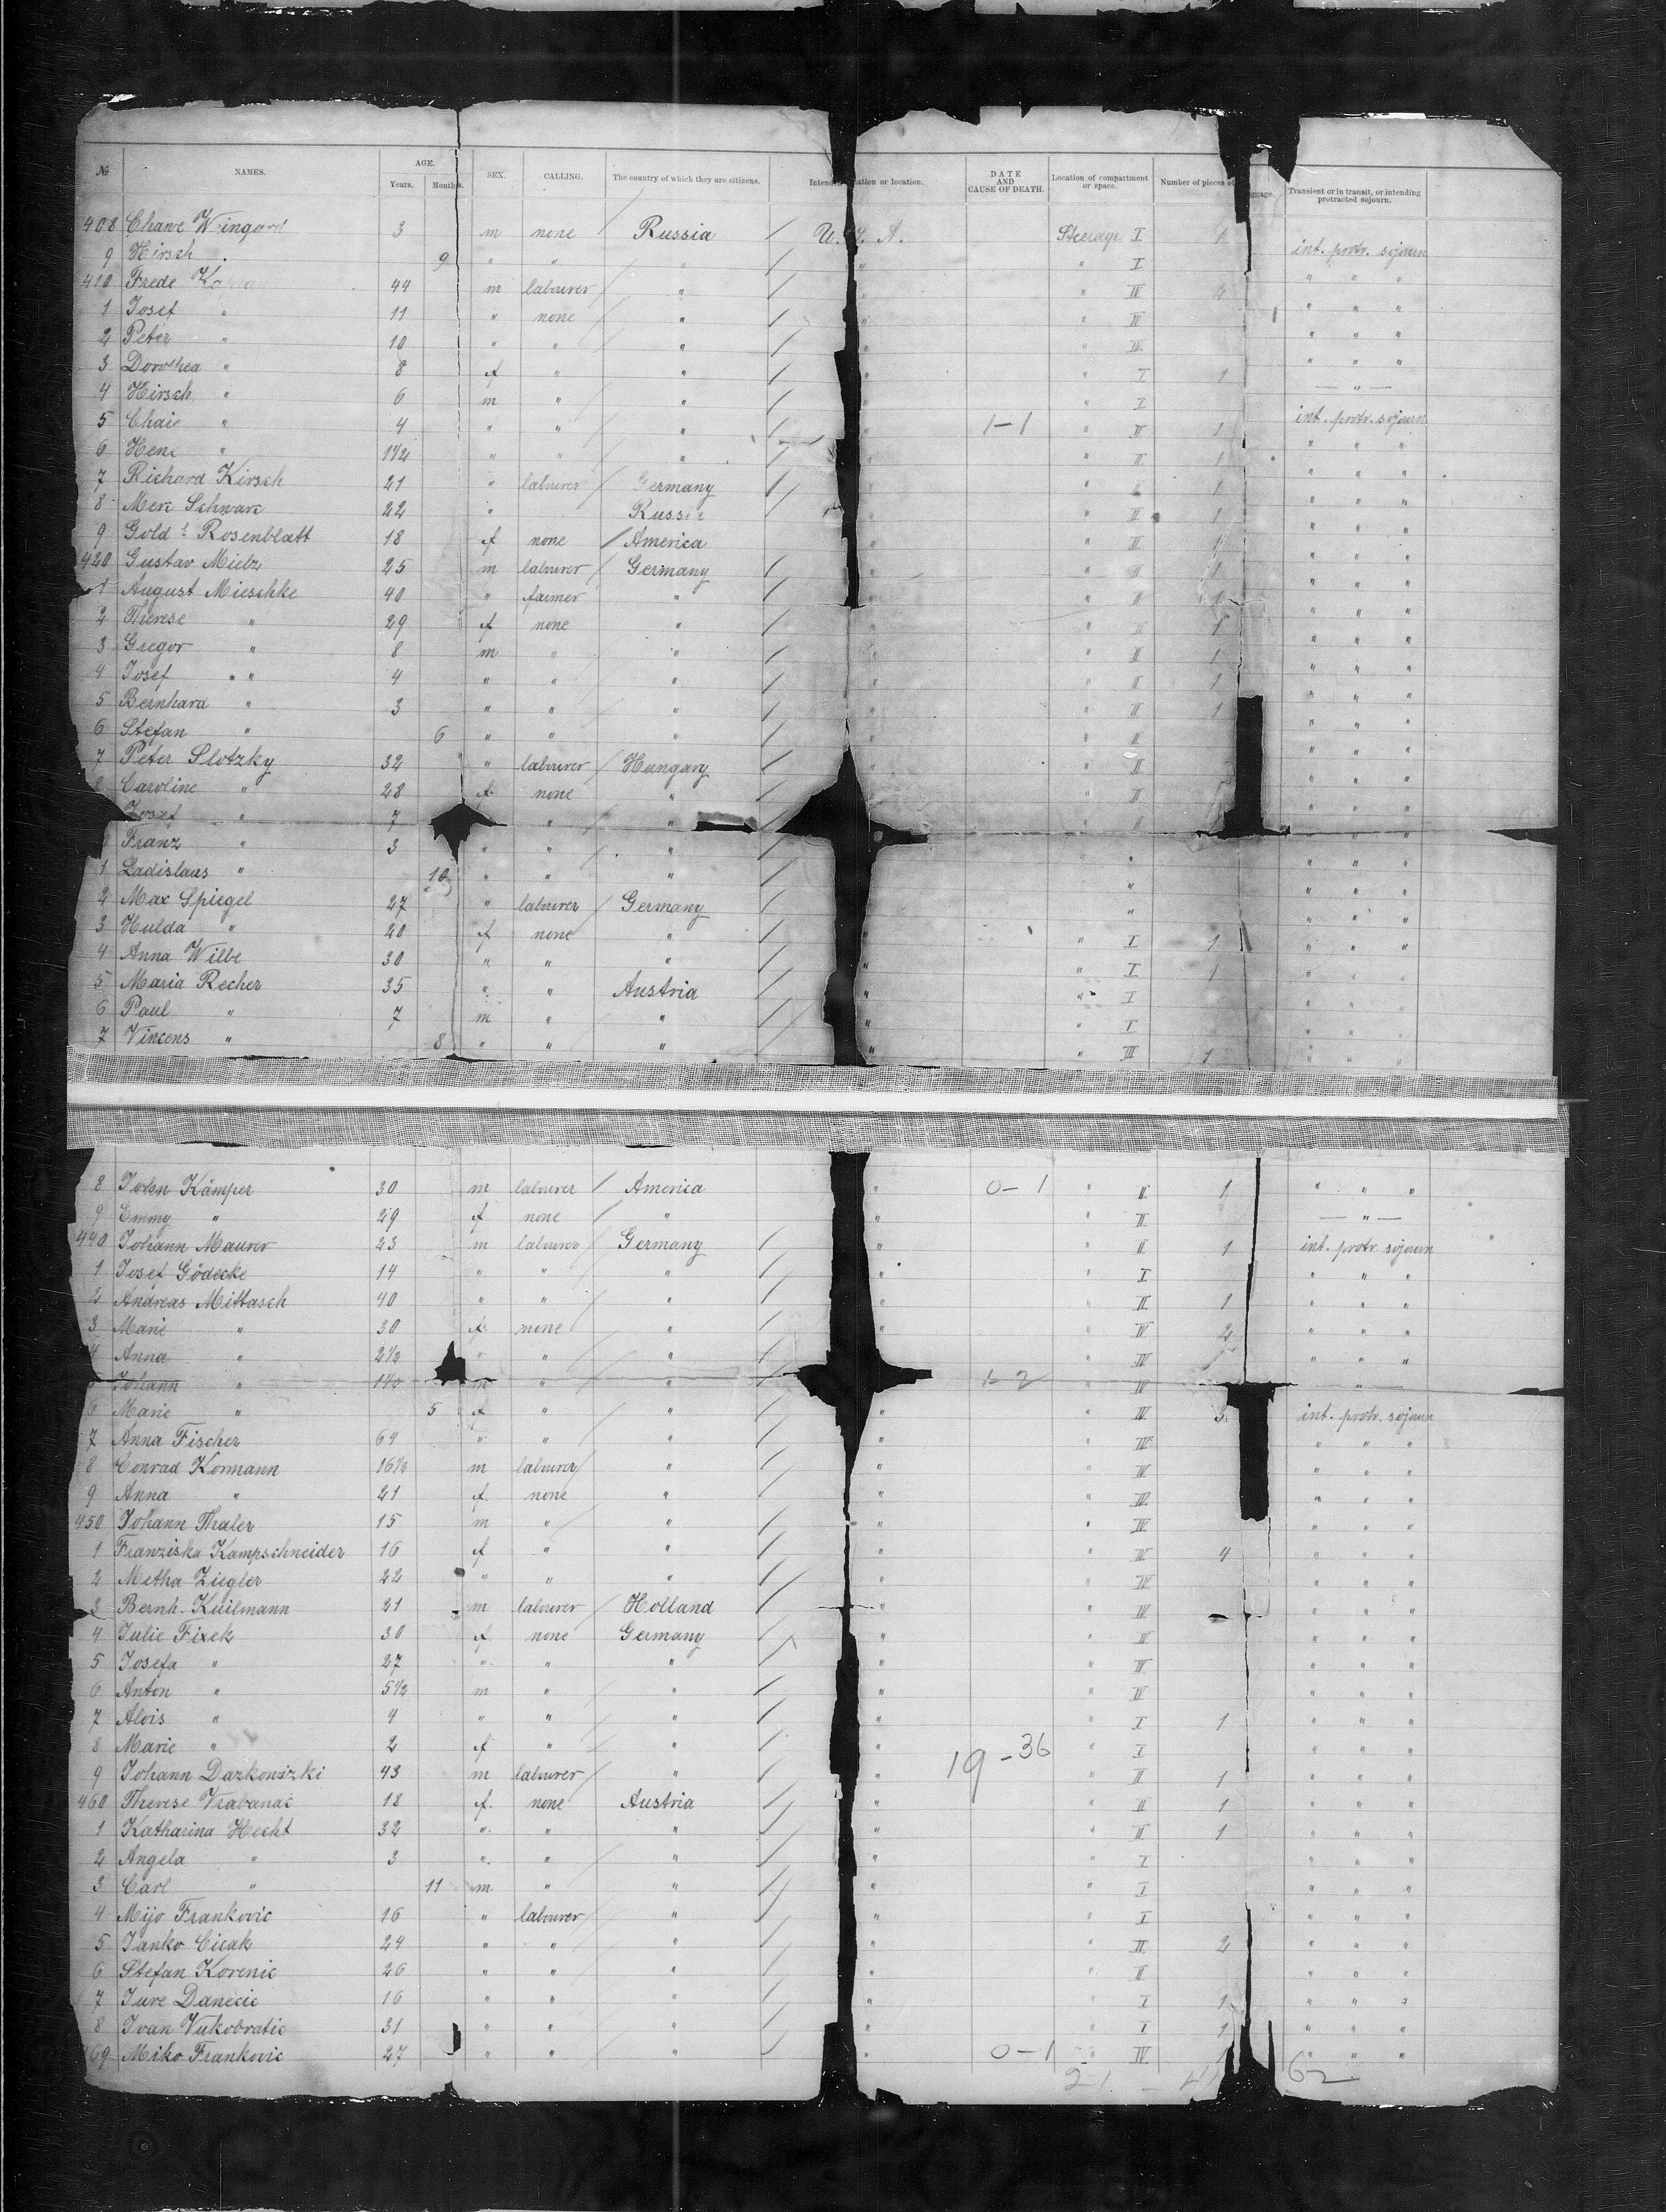 № NAMES. AGE. Years. Months. SEX. CALLING. The country of which they are citizens. Intended ation or location. DATE AND CAUSE OF DEATH. Location of compartment or space. Number of pieces of ggage. Transient or in transit, or intending protracted sojourn.
408 Chawe Wingard 3 m none Russia U. S. A. Steerage I 1
9 Hirsch 9 " " " " I int. protr. sojourn
410 Frede 44 m labourer " " " IV 2 " " "
1 Josef " 11 " none " " " IV " " "
2 Peter " 10 " " " " " IV " " "
3 Dorothea " 8 f " " " " I 1 " " "
4 Hirsch " 6 m " " " " I — " —
5 Chaie " 4 " " " " 1-1 " II 1 int. protr. sojourn
6 " 1 1/2 " " " " " II 1 " " "
7 Richard Kirsch 21 " labourer Germany " " 1 " " "
8 Mere Schwarc 22 " Russia " " II 1 " " "
9 Gold Rosenblatt 18 f none America " II 1 " " "
420 Gustav Mielz 25 m labourer Germany " " II 1 " " "
1 August Mieschke 40 " farmer " " " II 1 " " "
2 Therese " 29 f none " " " II 1 " " "
3 Gregor " 8 m " " " " II 1 " " "
4 Josef " 4 " " " " " II 1 " " "
5 Bernhard " 3 " " " " " II 1 " " "
6 Stefan " 6 " " " " " II " " "
7 Peter Slotzky 32 " labourer Hungary " " II " " "
8 Caroline " 28 f. none " " " II " " "
Josef " 7 " " " II " " "
Franz " 3 " " " " " "
1 Ladislaus " 10 " " " " " " "
2 Max Spiegel 27 " labourer Germany " " " "
3 Hulda " 20 f none " " " I 1 " " "
4 Anna Wilbe 30 " " " " " I 1 " " "
5 Maria Recher 35 " " Austria " " I " " "
6 Paul " 7 m " " " " I " " "
7 Vincens " 8 " " " " " III 1 " " "
8 Kämper 30 m labourer America " 0-1 " II 1 " " "
9 Emmy " 29 f none " " " II — " —
440 Johann Maurer 23 m labourer Germany " " II 1 int. protr. sojourn
1 Josef Gödecke 14 " " " " " I " " "
2 Andreas Mittasch 40 " " " " " II 1 " " "
3 Marie " 30 f. none " " " IV 2 " " "
4 Anna " 2 1/2 " " " " " IV " " "
5 Johann " 1 1/2 m " " 1-2 " IV — " —
6 Marie " 5 f " " " " IV 3 int. protr. sojourn
7 Anna Fischer 64 " " " " " IV " " "
8 Conrad Kormann 16 1/2 m labourer " " " IV " " "
9 Anna " 21 f. none " " " IV " " "
450 Johann Thaler 15 m " " " " IV " " "
1 Franziska Kampschneider 16 f " " " " IV 4 " " "
2 Metha Ziegler 22 " " " " " IV " " "
3 Bernh. Kuilmann 21 m labourer Holland " " IV " " "
4 Julie Fixek 30 f. none Germany " " IV " " "
5 Josefa " 27 " " " " " IV " " "
6 Anton " 5 1/2 m " " " " IV " " "
7 Alois " 4 " " " " " I 1 " " "
8 Marie " 2 f " " " 19-36 " I " " "
9 Johann Dazkonszki 43 m labourer " " " II 1 " " "
460 Therese Vrabanac 18 f. none Austria " " II 1 " " "
1 Katharina Hecht 32 " " " " " II 1 " " "
2 Angela " 3 " " " " " I " " "
3 Carl " 11 m. " " " " I " " "
4 Mijo Frankovic 16 " labourer " " " I " " "
5 Janko Cicak 24 " " " " " II 2 " " "
6 Stefan Korenic 26 " " " " " II " " "
7 Jure Danecic 16 " " " " " I 1 " " "
8 Ivan Vukobratic 31 " " " " " I 1 " " "
469 Miko Frankovic 27 " " " " 0-1 " IV 1 " " "
21 - 41 62